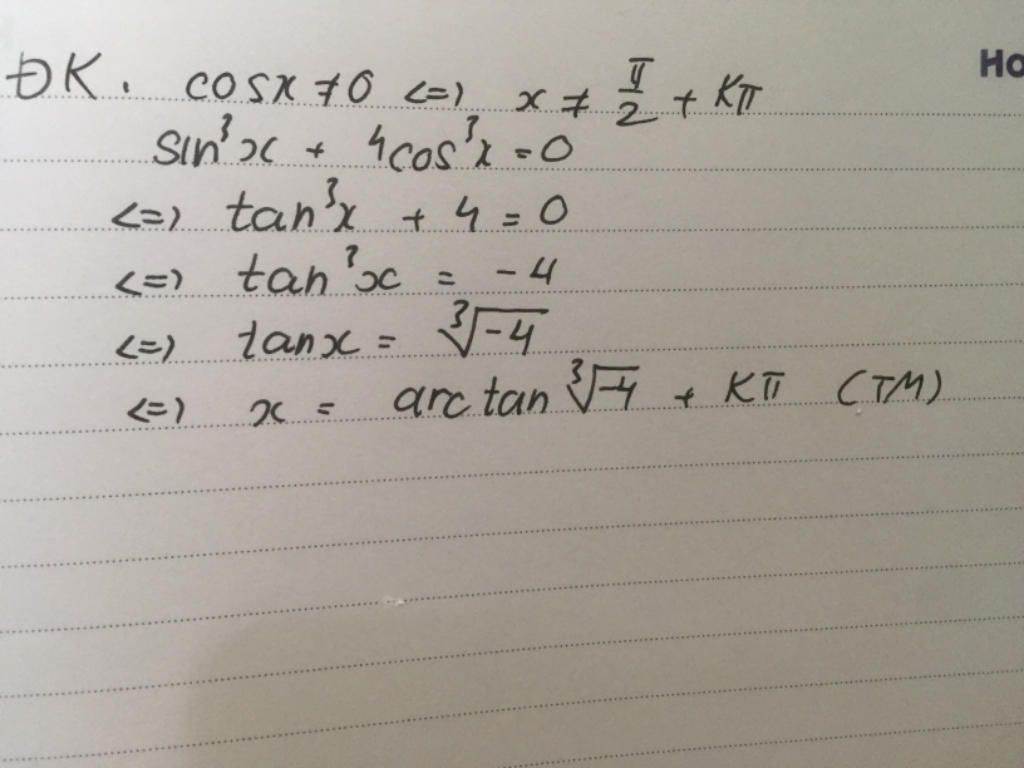 Ho
ĐK. cosx ≠ 0 <=> x ≠ π/2 + Kπ
sin³x + 4cos³x = 0
<=> tan³x + 4 = 0
<=> tan³x = -4
<=> tanx = ∛-4
<=> x = arctan ∛-4 + Kπ (TM)